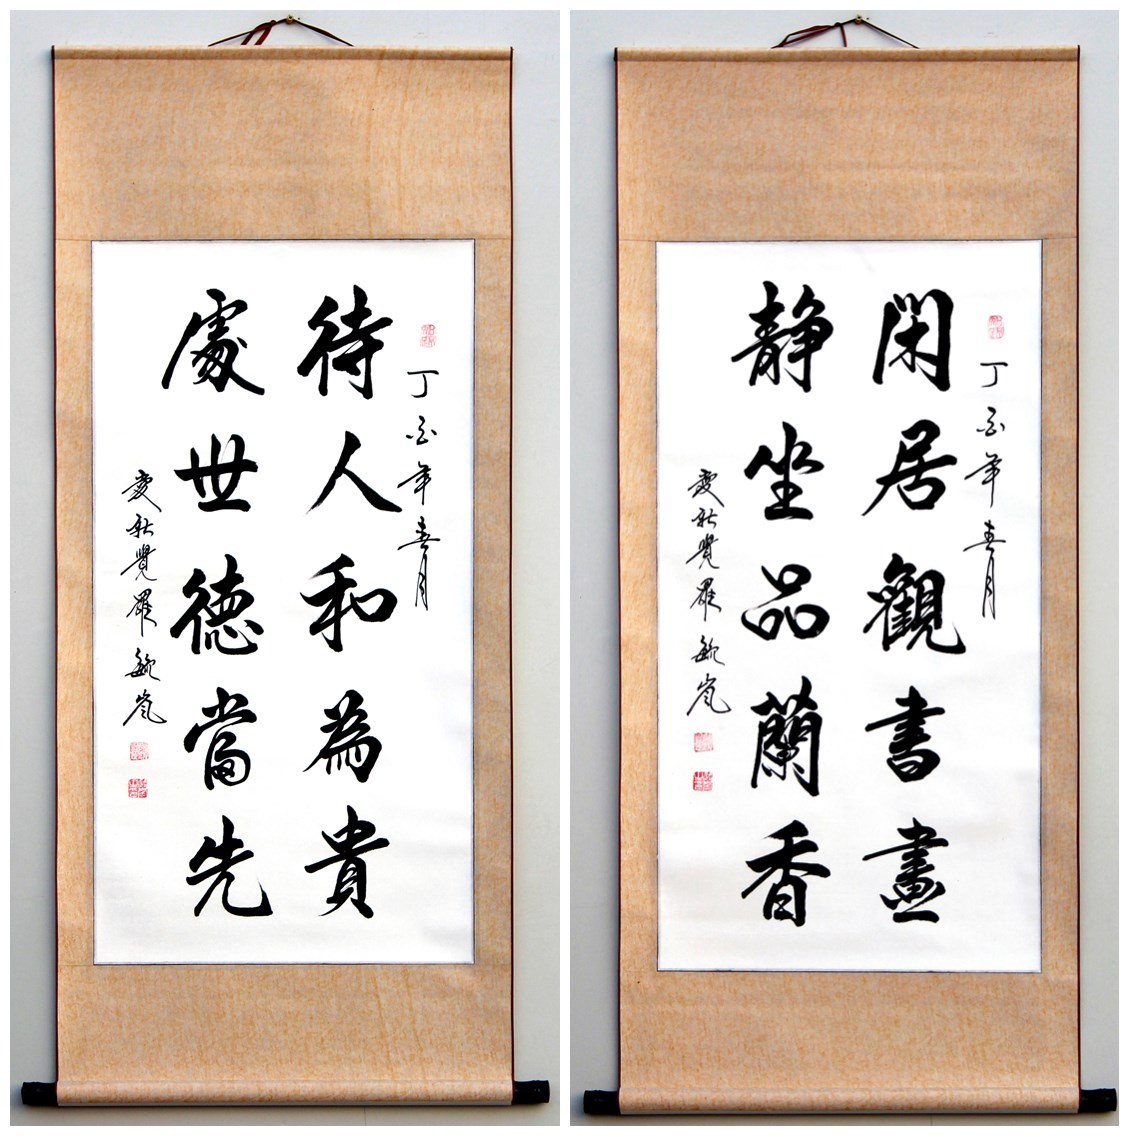 丁酉年春月
待人和為貴
處世德當先
愛新覺羅 毓嵐
丁酉年春月
閑居觀書畫
靜坐品蘭香
愛新覺羅 毓嵐